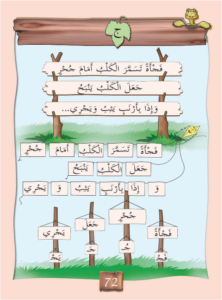 ج
فَجْأَةً تَسَمَّرَ الْكَلْبُ أَمَامَ جُحْرٍ
جَعَلَ الْكَلْبُ يَنْبَحُ
وَإِذَا بِأَرْنَبٍ يَثِبُ وَيَجْرِي...
فَجْأَةً تَسَمَّرَ الْكَلْبُ أَمَامَ جُحْرٍ
جَعَلَ الْكَلْبُ يَنْبَحُ
وَ إِذَا بِأَرْنَبٍ يَثِبُ وَ يَجْرِي
فَجْأَةً جَعَلَ جُحْرٍ يَجْرِي
جَـ جُـ
72